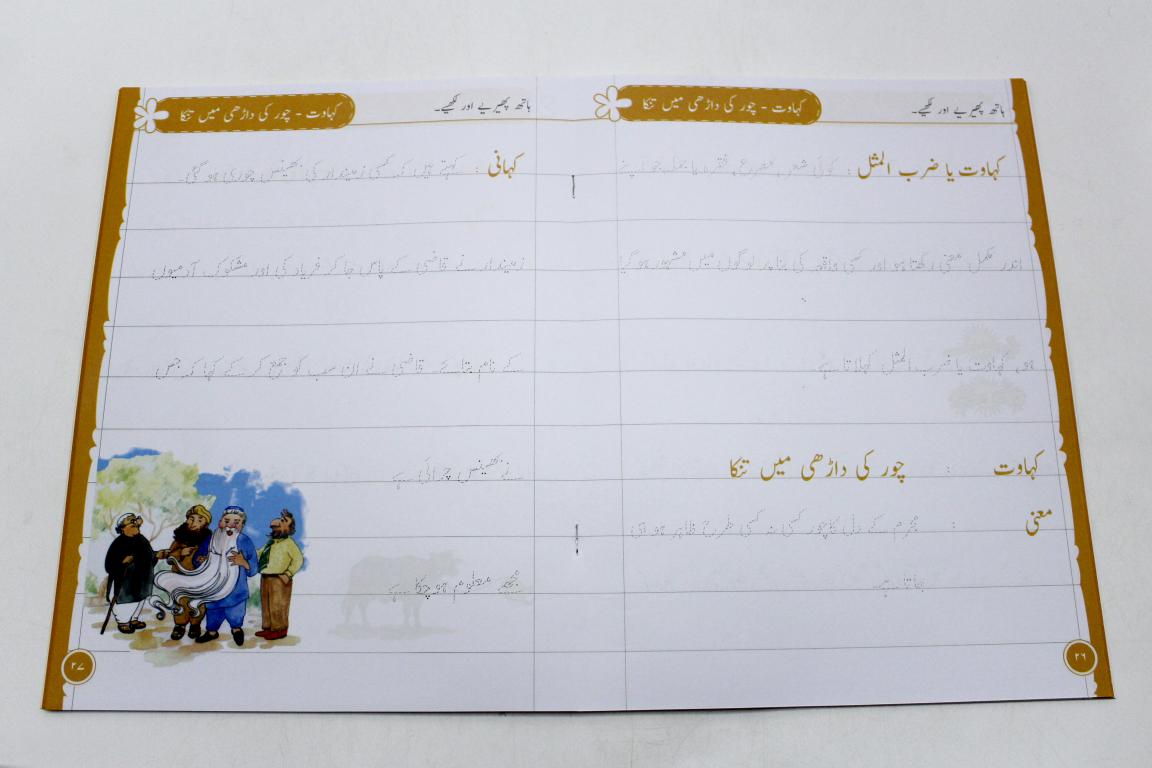 ہاتھ پھیریے اور لکھیے۔
کہاوت - چور کی داڑھی میں تنکا
کہاوت یا ضرب المثل : کوئی شعر، مصرع، فقرہ یا جملہ جو اپنے
اندر مکمل معنی رکھتا ہو اور کسی واقعہ کی بنا پر لوگوں میں مشہور ہو گیا
ہو، کہاوت یا ضرب المثل کہلاتا ہے۔
کہاوت : چور کی داڑھی میں تنکا
معنی : مجرم کے دل کا چور کسی نہ کسی طرح ظاہر ہو ہی
جاتا ہے۔
۲۶
ہاتھ پھیریے اور لکھیے۔
کہاوت - چور کی داڑھی میں تنکا
کہانی : کہتے ہیں کہ کسی زمیندار کی بھینس چوری ہو گئی۔
زمیندار نے قاضی کے پاس جا کر فریاد کی اور مشکوک آدمیوں
کے نام بتائے۔ قاضی نے ان سب کو جمع کر کے کہا کہ جس
نے بھینس چرائی ہے
مجھے معلوم ہو چکا ہے
۲۷